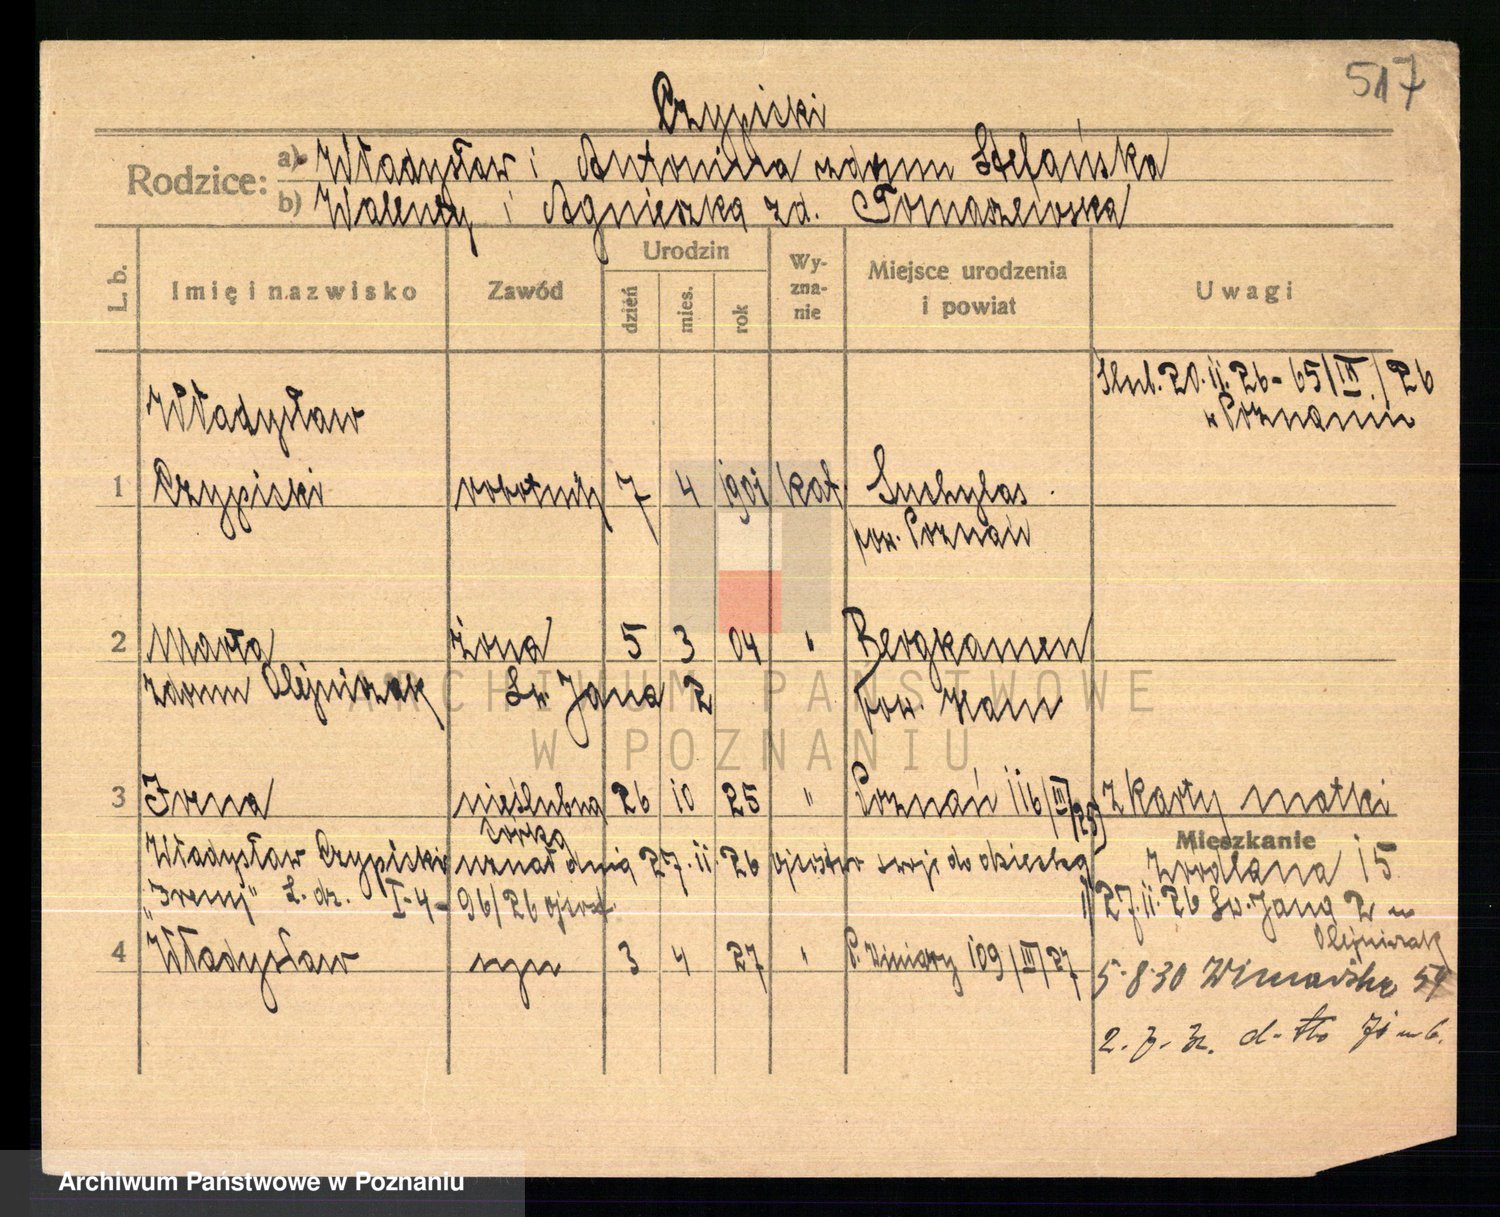 517
Czypicki
Rodzice: a) Władysław i Antonina zdomu Stefańska
b) Walenty i Agnieszka zd. Tomaszewska
L. b.
Imię i nazwisko
Zawód
Urodzin
dzień
mies.
rok
Wy-
zna-
nie
Miejsce urodzenia
i powiat
Uwagi
Ślub. 20.11.26 - 65/III/26
w Poznaniu
Władysław
1 Czypicki robotnik 7 4 1901 kat. Suchylas
pow. Poznań
2 Marta żona 5 3 04 " Bergkamen
zdomu Olejniczak Św. Jana 2 pow. Ham
3 Irena nieślubna 26 10 25 " Poznań 116/III/25 z karty matki
córka
Mieszkanie
Władysław Czypicki uznał dnia 27.11.26 ojcostwo swoje do dziecka
Źródlana 15
"Ireny" L. dz. I-4- 96/26 ojcost.
27.11.26 Św. Jana 2 m
Olejniczak
4 Władysław syn 3 4 27 " P. Winiary 109/III/27
5.8.30 Winiarska 54
d-tto
ARCHIWUM PAŃSTWOWE
W POZNANIU
Archiwum Państwowe w Poznaniu